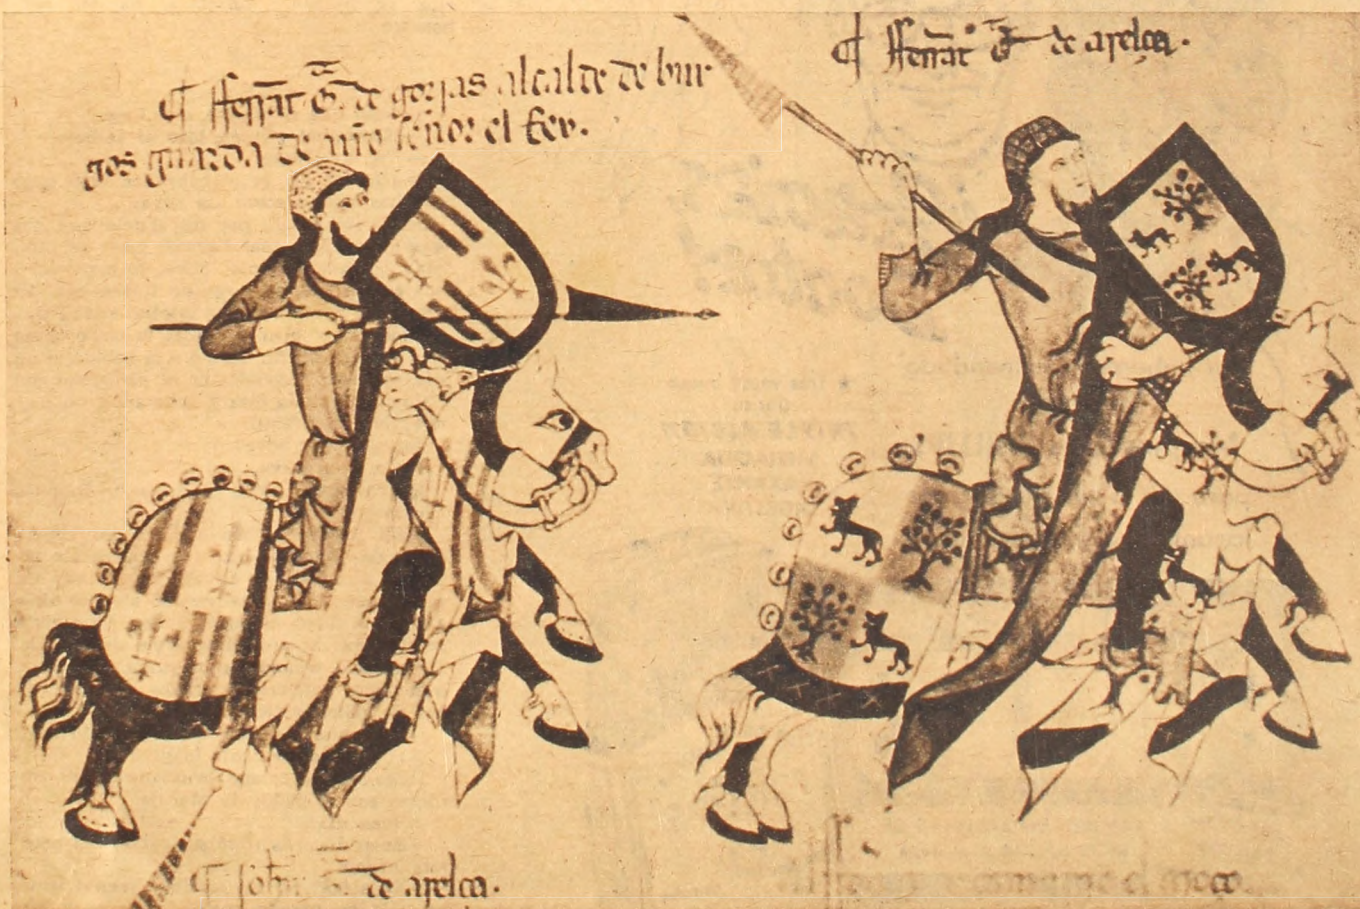 ¶ fferrãt Gª de gorjas alcalde de bur
gos guarda de nr̃o señor el Rey.
¶ fferrãt Gª de arelça.
¶ Joħn Gª de arelça.
el moço.